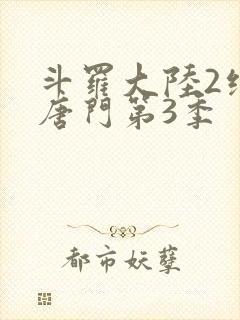 斗羅大陸2
唐門第3季
都市妖孽